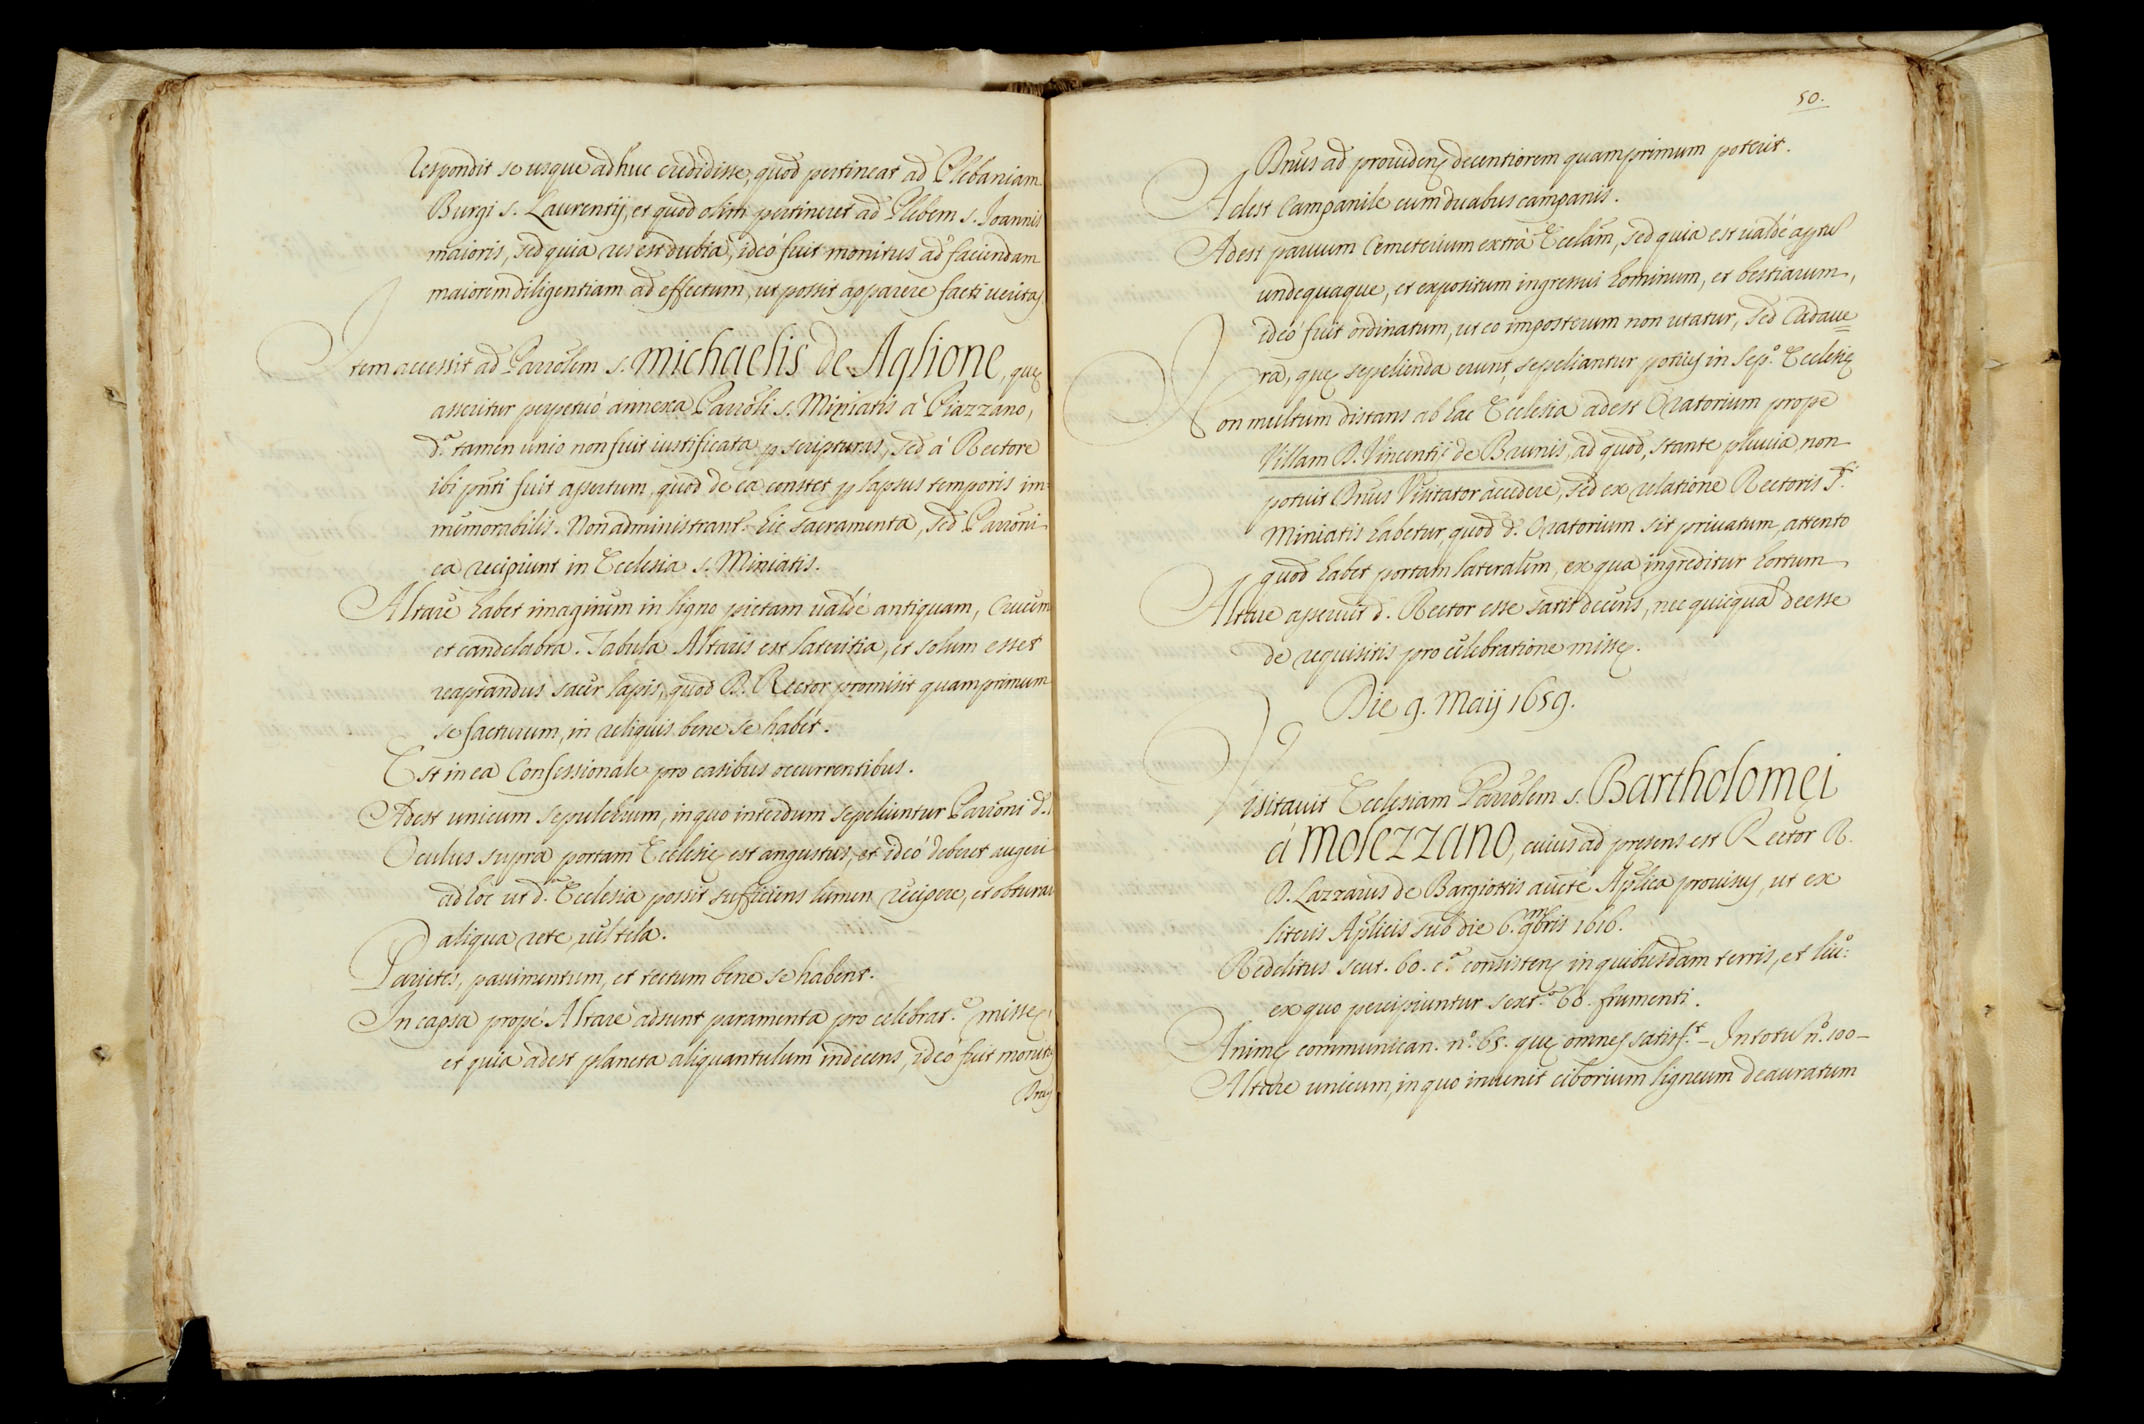 respondit se usque adhuc credidisse, quod pertineat ad Plebaniam
Burgi s. Laurentij, et quod olim pertineret ad Plebem s. Joannis
maioris, sed quia res est dubia, ideò fuit monitus ad faciendam
maiorem diligentiam ad effectum, ut possit apparere facti veritas
Item accessit ad Parrolem s. michaelis de Aglione, que
asseritur perpetuò annexa Parroli s. Miniatis à Piazzano,
d.ª tamen unio non fuit iustificata p scripturas, sed à Rectore
ibi pnti fuit assertum, quod de ea constet p lapsus temporis im=
memorabilis. Non administrant.r hic sacramenta, sed Parroni
ea recipiunt in Ecclesia s. Miniatis.
Altare habet imaginem in ligno pictam valdè antiquam, Crucem
et candelabra. Tabula Altaris est lateritia, et solum esset
reaptandus sacer lapis, quod D. Rector promisit quamprimum
se facturum, in reliquis bene se habet.
Est in ea Confessionale pro casibus occurrentibus.
Adest unicum sepulchrum, in quo interdum sepeliuntur Parroni d.i
Oculus supra portam Ecclesie est angustus, et ideò deberet augeri
ad hoc ut d.ª Ecclesia possit sufficiens lumen recipere, et obturari
aliqua rete, vel tela.
Parietes, pavimentum, et tectum bene se habent.
In capsa propè Altare adsunt paramenta pro celebrat.e misse,
et quia adest planeta aliquantulum indecens, ideò fuit monitus
Dnus
50.
Dnus ad providend decentiorem quamprimum poterit.
Adest Campanile cum duabus campanis.
Adest parvum Cemeterium extrà Ecclam, sed quia est valdè aptu
undequaque, et expositum ingressui hominum, et bestiarum,
ideò fuit ordinatum, ut eo imposterum non utatur, sed Cadave=
ra, que sepelienda erunt, sepeliantur potius in sep.º Ecclesie
Non multum distans ab hac Ecclesia adest Oratorium prope
Villam D. Vincentij de Brunis, ad quod, stante pluvia, non
potuit Dnus Visitator accedere, sed ex relatione Rectoris s.ti
Miniatis habetur, quod d. Oratorium sit privatum, attento
quod habet portam lateralem, ex qua ingreditur hortum
Altare asseruit d. Rector esse satis decens, nec quicquã deesse
de requisitis pro celebratione misse.
Die 9. Maij 1659.
Visitavit Ecclesiam Parrolem s. Bartholomei
à Molezzano, cuius ad presens est Rector R.
D. Lazzarus de Bargiottis aucte Aplica provisus, ut ex
literis Aplicis sub die 6. 9mbris 1616.
Redditus scut. 60. c.ª consistens in quibusdam terris, et liv:
ex quo percipiuntur sext.ª 60. frumenti.
Anime communican. n.º 65. que omnes satisf.t - In totu n.º 100-
Altare unicum, in quo invenit ciborium ligneum deauratum